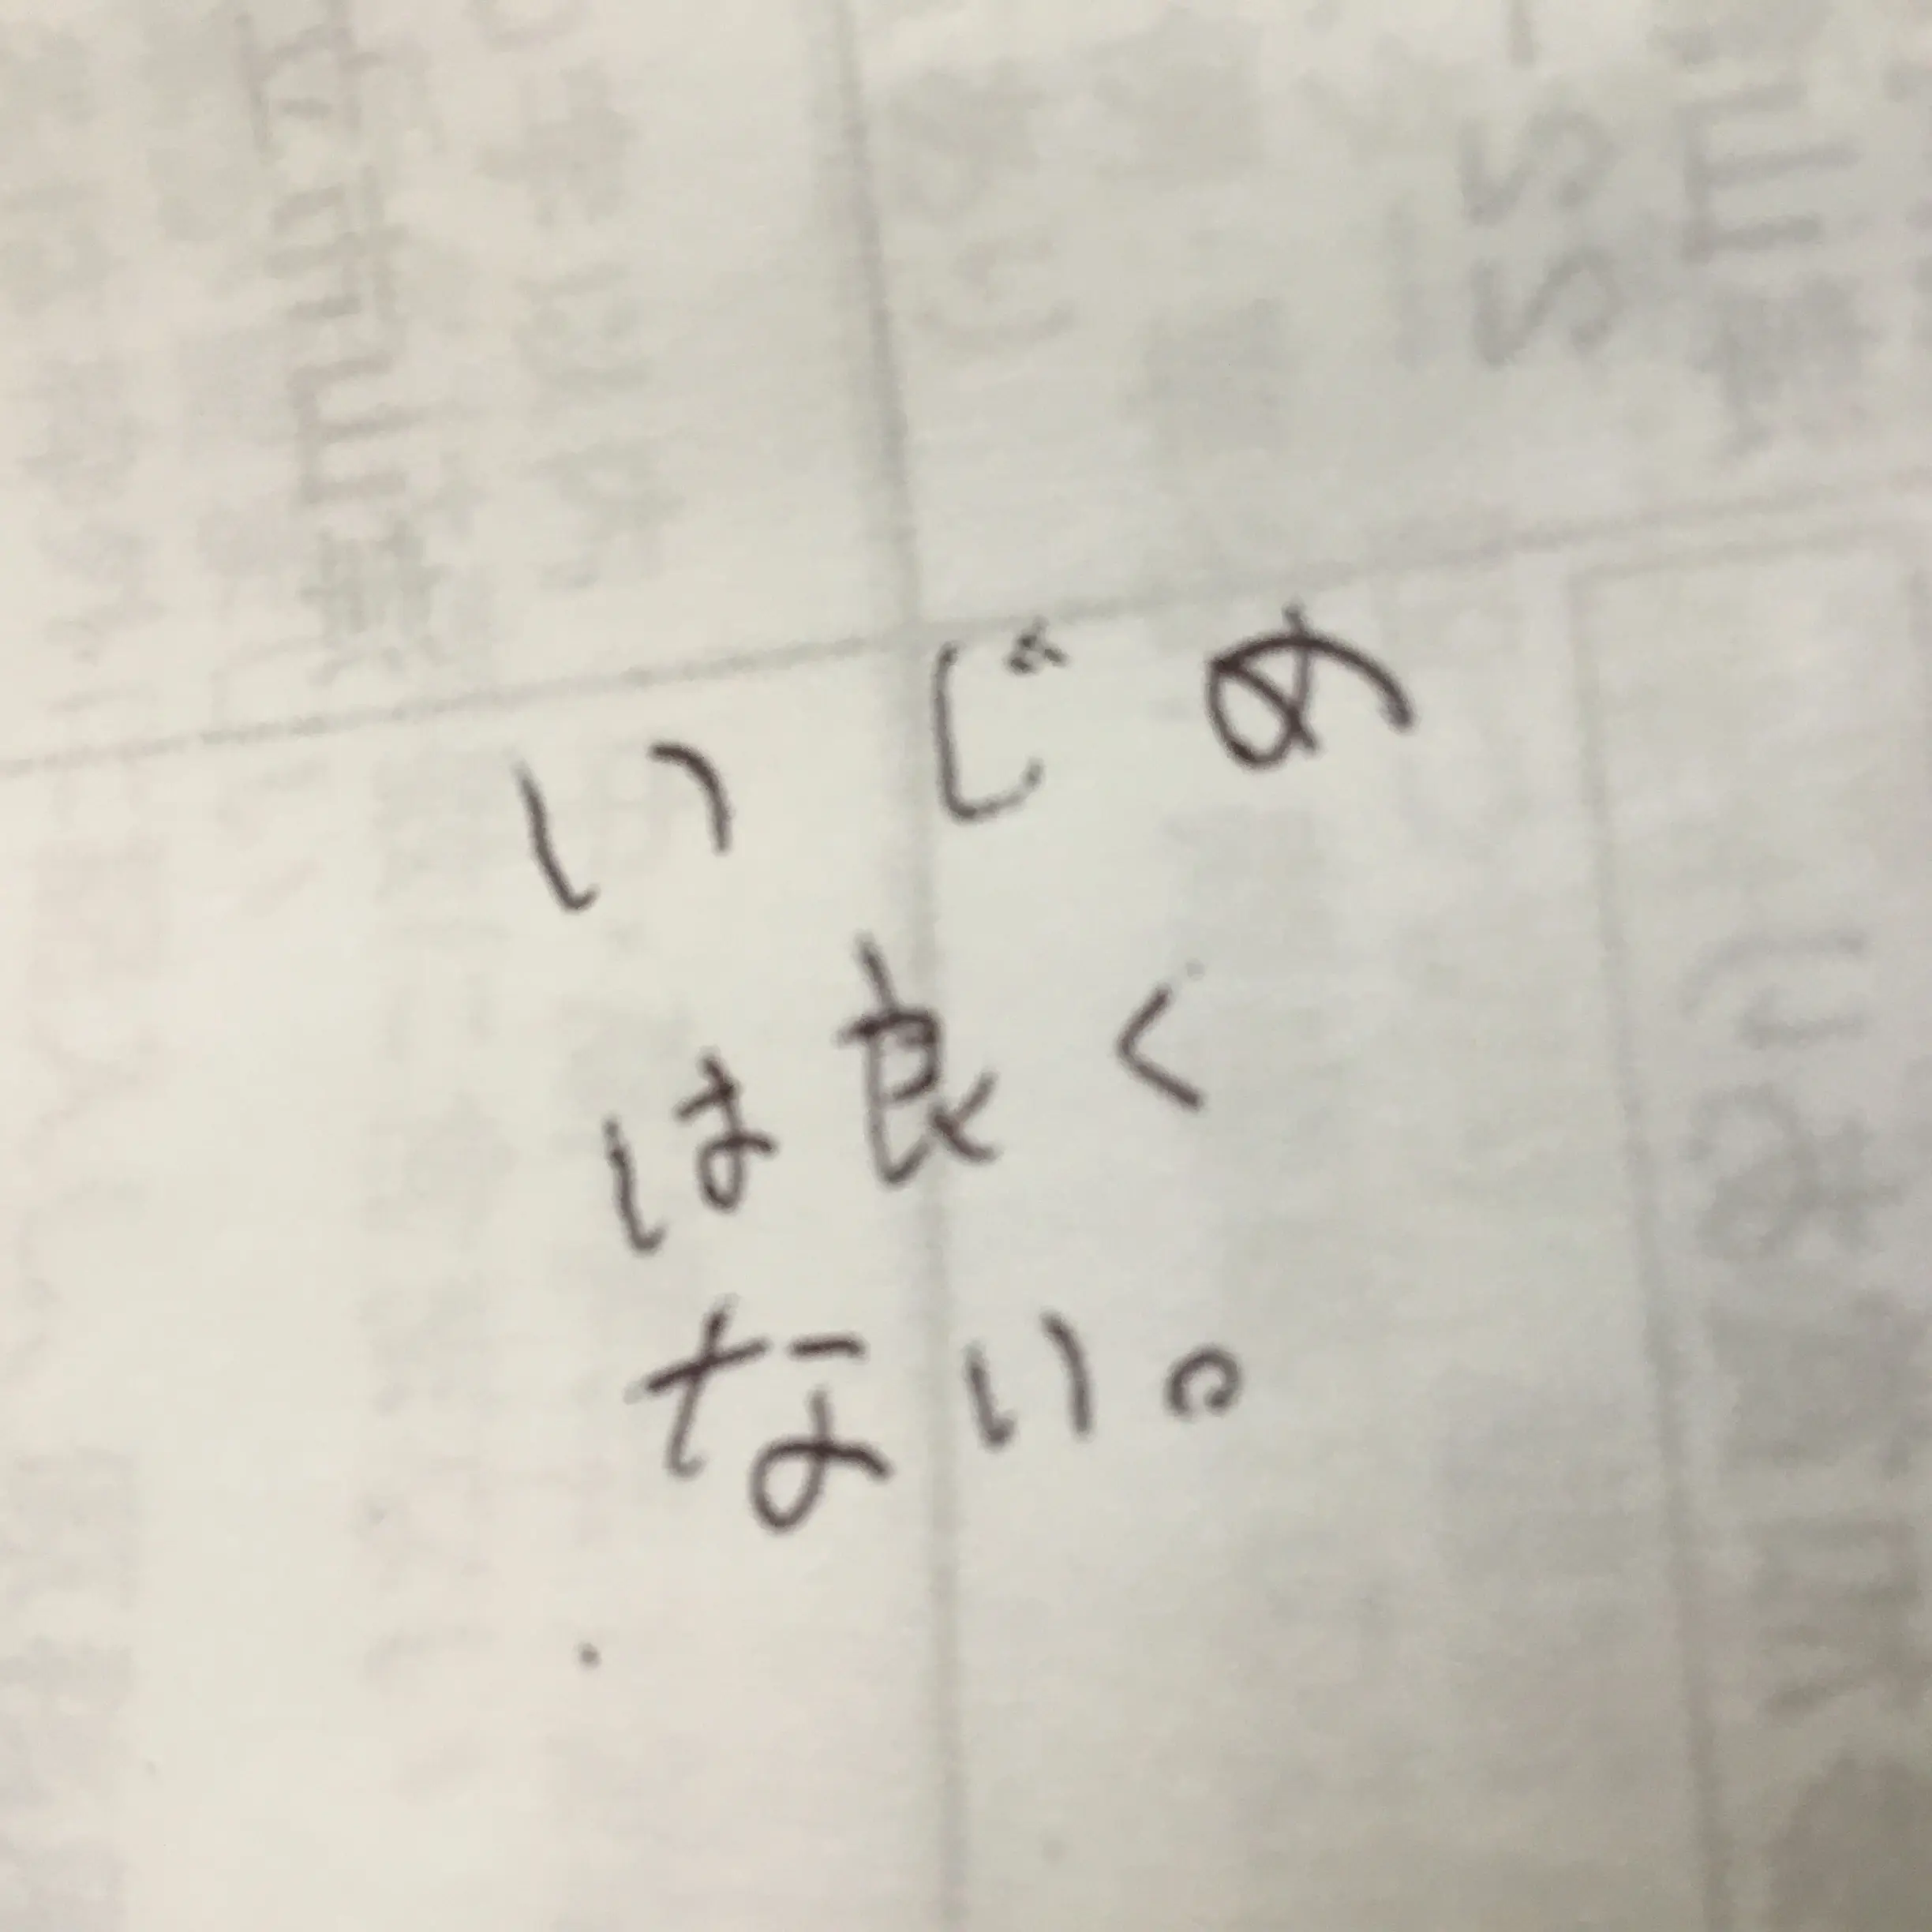 いじめ
は良く
ない。